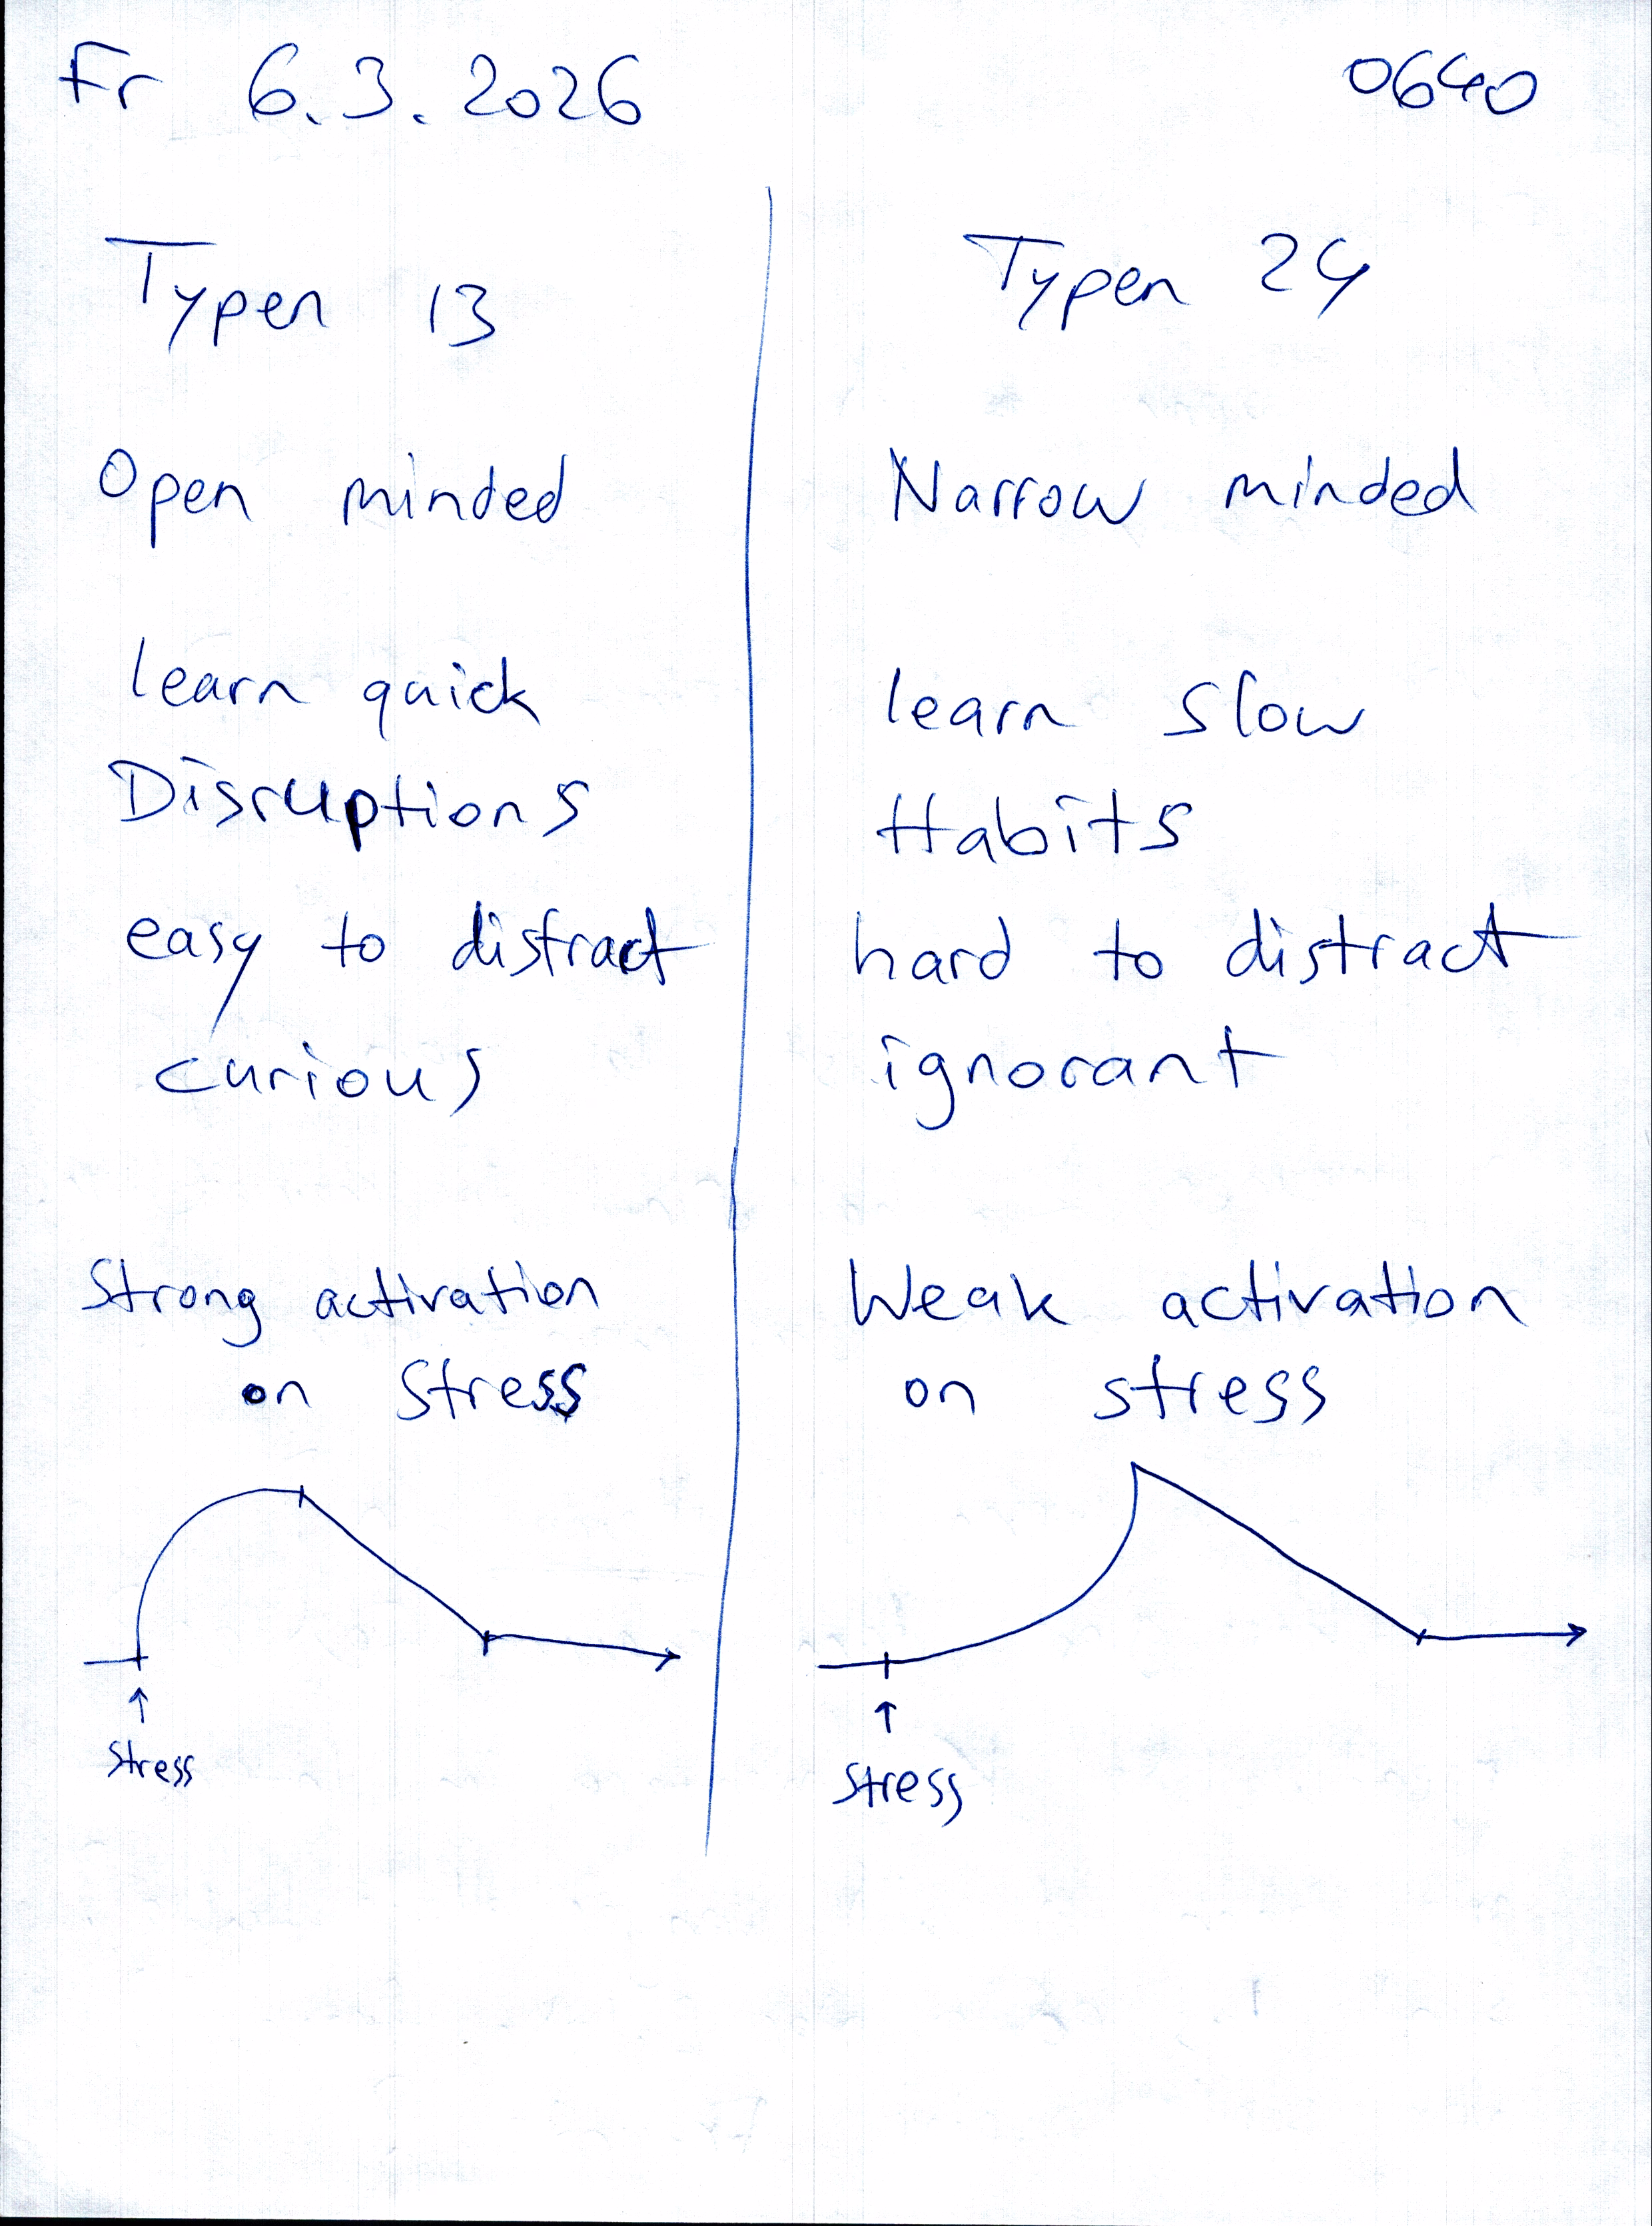 Fr 6.3.2026 0640
Typen 13
Open minded
learn quick
Disruptions
easy to distract
curious
Strong activation
on stress
stress
Typen 24
Narrow minded
learn slow
Habits
hard to distract
ignorant
Weak activation
on stress
stress